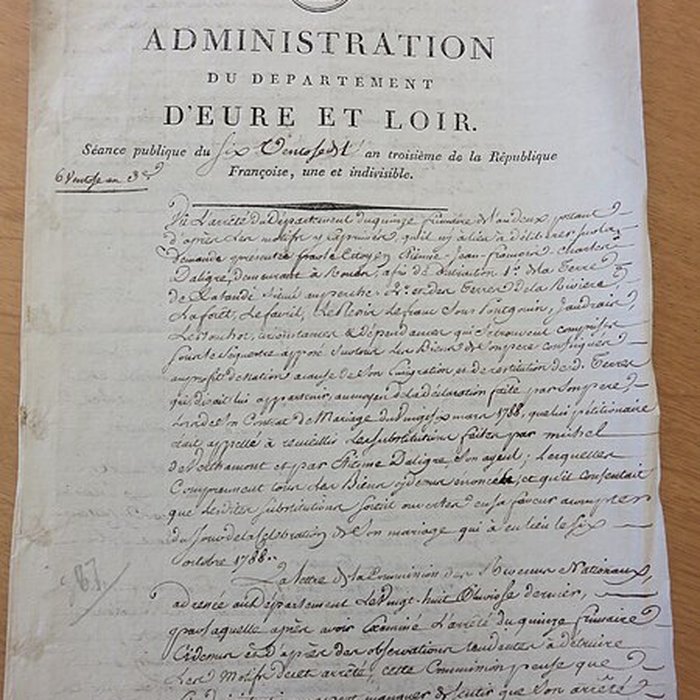 ADMINISTRATION
DU DEPARTEMENT
D'EURE ET LOIR.
Séance publique du six Ventose de l'an troisième de la République
6 Ventose an 3e
Françoise, une et indivisible.
Vu L'arrêté du Département du quinze frimaire de l'an deux portant
d'après les motifs y exprimés, qu'il n'y a lieu à délibérer sur la
demande présentée par le Citoyen Etienne Jean françois charles
Daligre, demeurant à Rouen, afin de distraction 1° de la Terre
de situé au perche. 2° et des Terres de la Riviere,
Laforêt, Lefavril, sous Pontgouin,
circonstances & dépendances qui se trouvent comprises
sous le séquestre apposé sur tous les Biens de son pere confisqués
au profit de la Nation a cause de son Emigration et de restitution desd. Terres
qui disait lui appartenir, au moyen de la déclaration faite par son pere,
lors de son Contrat de Mariage du Vingt six mars 1788, que lui pétitionnaire
était appellé à recueillir les substitutions faites par michel
de Verthamont et par Etienne Daligre, son ayeul; lesquelles
Comprennent tous les Biens cy dessus énoncés, et qu'il consentait
que lesdites substitutions soient ouvertes en sa faveur a compter
du jour de la celebration de son mariage qui a eu lieu le six
octobre 1788.
La lettre de la Commission des Revenus Nationaux,
adressée au Département le Vingt-huit Pluviose dernier,
par laquelle après avoir Examiné L'arrêté du quinze frimaire
Cidessus et d'après des observations tendantes à détruire
les Motifs dudit arrêté, cette Commission pense que
87
manquer de sentir que son arrêté